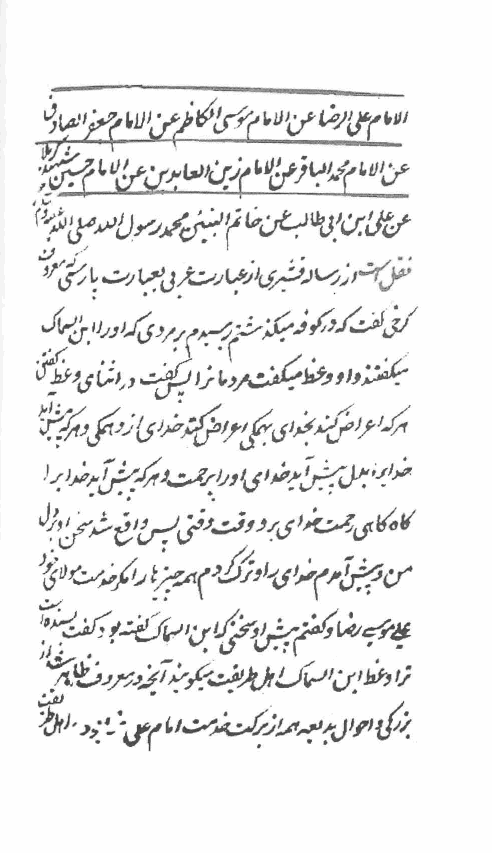 الامام علی الرضا عن الامام موسی الکاظم عن الامام جعفر الصادق
عن الامام محمد الباقر عن الامام زین العابدین عن الامام حسین شهید کربلا
عن علی ابن ابی طالب عن خاتم النبیین محمد رسول الله صلی الله علیه و آله
نقل است از رساله قشیری از عبارت عربی بعبارت پارسی که معروف
کرخی گفت که در کوفه میگذشتم رسیدم بر مردی که او را ابن السماک
میگفتند و او وعظ میگفت مردمانرا پس گفت در اثنای وعظ گفتن
هر که اعراض کند بخدای بهمگی اعراض کند خدای ازو بهمگی و هر که پیش آید
خدایرا بدل پیش آید خدای او را برحمت و هر که پیش آید خدایرا
گاه گاهی رحمت خدای برد وقت وقتی پس واقع شد سخن او بر دل
من و پیش آمدم خدای را و ترک کردم همه چیزها را مگر خدمت مولای خود
علی موسی رضا و گفتم پیش او سخنی که ابن السماک گفته بود گفت بسنده است
ترا وعظ ابن السماک اهل طریقت میگویند آنچه در معروف ظاهر شد از
بزرگی و احوال بدیعه همه از برکت خدمت امام علی بود اهل طریقت